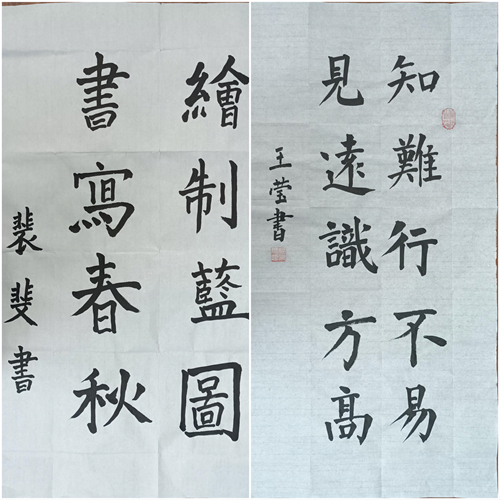 繪制藍圖
書寫春秋
裴斐書
知難行不易
見遠識方高
王莹書